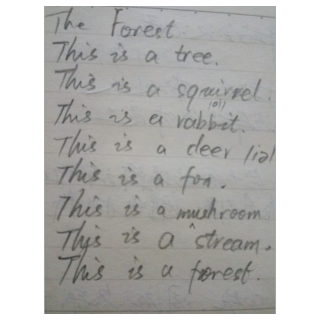 The Forest
This is a tree.
This is a squirrel.
This is a rabbit.
This is a deer
This is a fox.
This is a mushroom
This is a stream.
This is a forest.